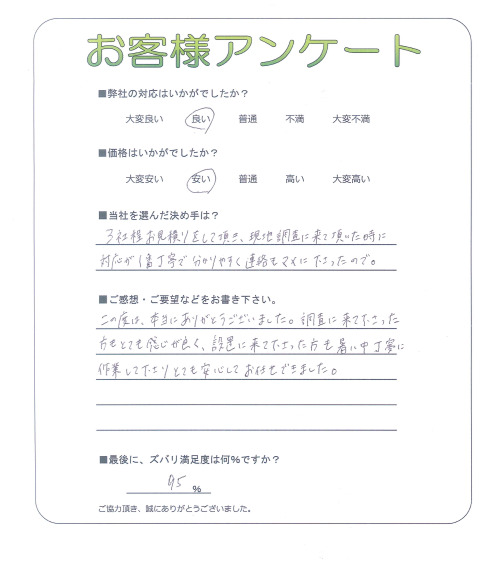 お客様アンケート
■弊社の対応はいかがでしたか？
大変良い 良い 普通 不満 大変不満
■価格はいかがでしたか？
大変安い 安い 普通 高い 大変高い
■当社を選んだ決め手は？
3社程お見積りをして頂き、現地調査に来て頂いた時に
対応が1番丁寧で分かりやすく連絡もマメに下さったので。
■ご感想・ご要望などをお書き下さい。
この度は、本当にありがとうございました。調査に来て下さった
方もとても感じが良く、設置に来て下さった方も暑い中丁寧に
作業して下さりとても安心してお任せできました。
■最後に、ズバリ満足度は何%ですか？
95 %
ご協力頂き、誠にありがとうございました。